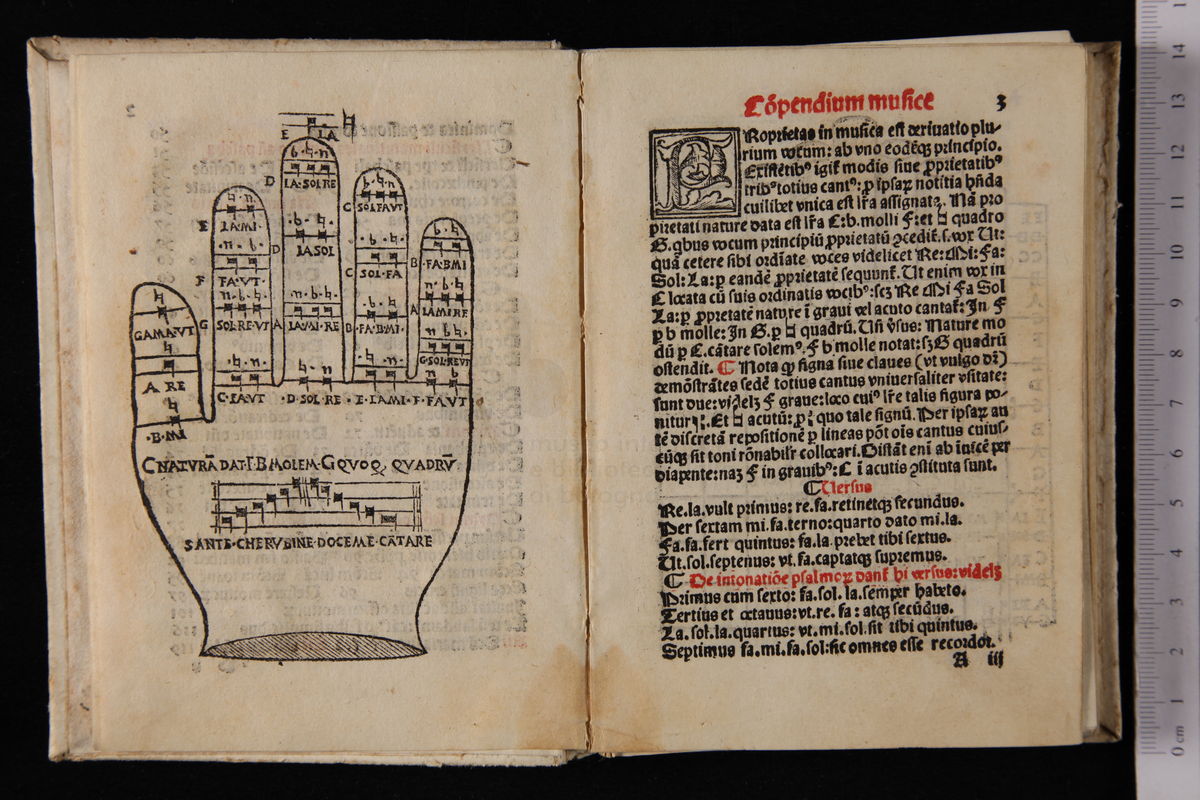 E LA
LA·SOL·RE
LA·MI·
LA SOL
SOL·FA·VT
SOL·FA
FA·VT·
SOL·RE·VT
LA·MI·RE
FA·B·MI·
·FA·B·MI
LA·MI·RE
G·SOL·REVT
GAMA·VT
A RE
·B·MI
C·FA·VT
·D·SOL·RE
·E·LA·MI
·F·FAVT
C NATVRĀ DAT·F·B MOLEM·G QVOQ QVADRV̄
SANTE·CHERVBINE·DOCE ME·CĀTARE
Cōpendium musice 3
PRoprietas in musica est deriuatio plu-
rium vocum: ab vno eodēqȝ principio.
Existētibꝰ igit̄ modis siue ꝓprietatibꝰ
tribꝰ totius cantꝰ: ꝓ ipsaꝝ notitia hn̄da
cuilibet vnica est lr̄a assignata. Nā pro
prietati nature data est lr̄a C: b. molli F: et ♮ quadro
G. qbus vocum principiū ꝓprietatū ꝓcedit. s. vox Vt:
quā cetere sibi ordiate voces videlicet Re: Mi: Fa:
Sol: La: ꝑ eandē ꝓprietatē sequunt̄. Vt enim vox in
C locata cū suis ordinatis vocibꝰ: scȝ Re Mi Fa Sol
La: ꝑ ꝓprietatē nature ī graui vel acuto cantat̄: In F
ꝑ b molle: In G. ꝑ ♮ quadrū. Vn̄ v̄sus: Nature mo
dū ꝑ C. cātare solemꝰ. F b molle notat: sȝ G quadrū
ostendit. ¶ Nota ꝙ signa siue claues (vt vulgo dr̄)
demōstrātes sedē totius cantus vniuersaliter vsitate:
sunt due: videlȝ F graue: loco cuiꝰ lr̄e talis figura po-
nitur. Et ♮ acutū: ꝓ quo tale signū. Per ipsaꝝ au
tē discretā repositionē ꝑ lineas pōt ois cantus cuius-
cūqȝ sit toni rōnabilr̄ collocari. Distāt eni ab īuicē per
diapente: naȝ F in grauibꝰ: C ī acutis ꝯstituta sunt.
¶ Versus
Re. la. vult primus: re. fa. retinetqȝ secundus.
Per sextam mi. fa. terno: quarto dato mi. la.
Fa. fa. fert quintus: fa. la prebet tibi sextus.
Vt. sol. septenus: vt. fa. captatqȝ supremus.
¶ De intonatiōe psalmoꝝ dant̄ hi versus: videlȝ
Primus cum sexto: fa. sol. la. semper habeto.
Tertius et octauus: vt. re. fa: atqȝ secūdus.
La. sol. la. quartus: vt. mi. sol. sit tibi quintus.
Septimus fa. mi. fa. sol: sic omnes esse recordor.
A iii